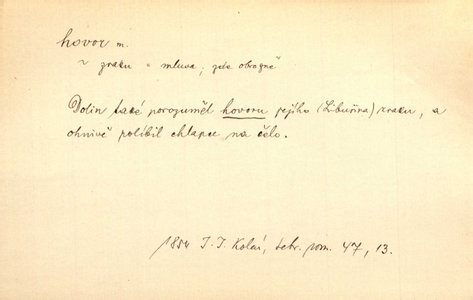 hovor m.
~ zraku = mluva; zde obrazně
Dolin také porozuměl hovoru jejího (Libušina) zraku, a
ohnivě políbil chlapce na čelo.
1854 J. J. Kolár, sebr. pov. 47, 13.